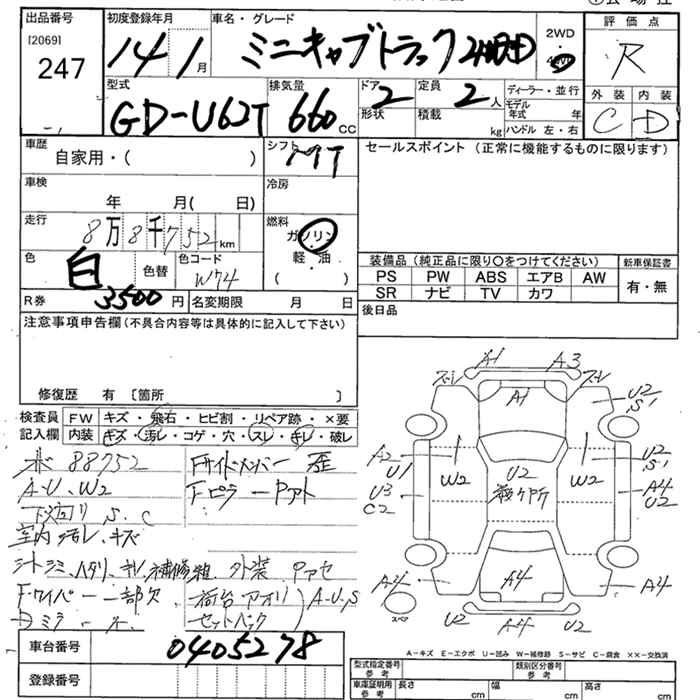 出品番号 初度登録年月 車名・グレード 2WD 評価点
[2069] 247 14年1月 ミニキャブトラック 4WD R
型式 排気量 ドア 定員 ディーラー・並行 外装 内装
GD-U62T 660cc 2 2人 モデル年式 年 C D
形状 積載 kg ハンドル 左・右
車歴 シフト セールスポイント (正常に機能するものに限ります)
自家用・( ) MT
車検 冷房
年 月( 日)
走行 燃料
8万8千752km ガソリン
色 色替 色コード 軽・油
白 W74 ( )
装備品 (純正品に限り○をつけてください) 新車保証書
PS PW ABS エアB AW 有・無
SR ナビ TV カワ
R券 3500円 名変期限 月 日 後日品
注意事項申告欄 (不具合内容等は具体的に記入して下さい)
修復歴 有 〔箇所 〕
検査員 FW キズ・飛石・ヒビ割・リペア跡・×要
記入欄 内装 キズ・汚レ・コゲ・穴・スレ・キレ・破レ
88752 Fサイドメンバー 歪
A-U、W2 Fピラー
下廻リ S、C
室内 汚レ、キズ
補修粗 外装
Fワイパー 一部欠 荷台アオリ A-U,S
A1 A3
A1 U2 S1
A2 U1 W2 U2 W2 U2 S1
U3 C2 A4 U2
A4 A4 A4
スペア U2 A4 U2
A-キズ E-エクボ U-凹み W-補修跡 S-サビ C-腐食 ××-交換済
車台番号 0405278
登録番号
型式指定番号 参考 類別区分番号 参考
車庫証明用 参考 長さ cm 幅 cm 高さ cm